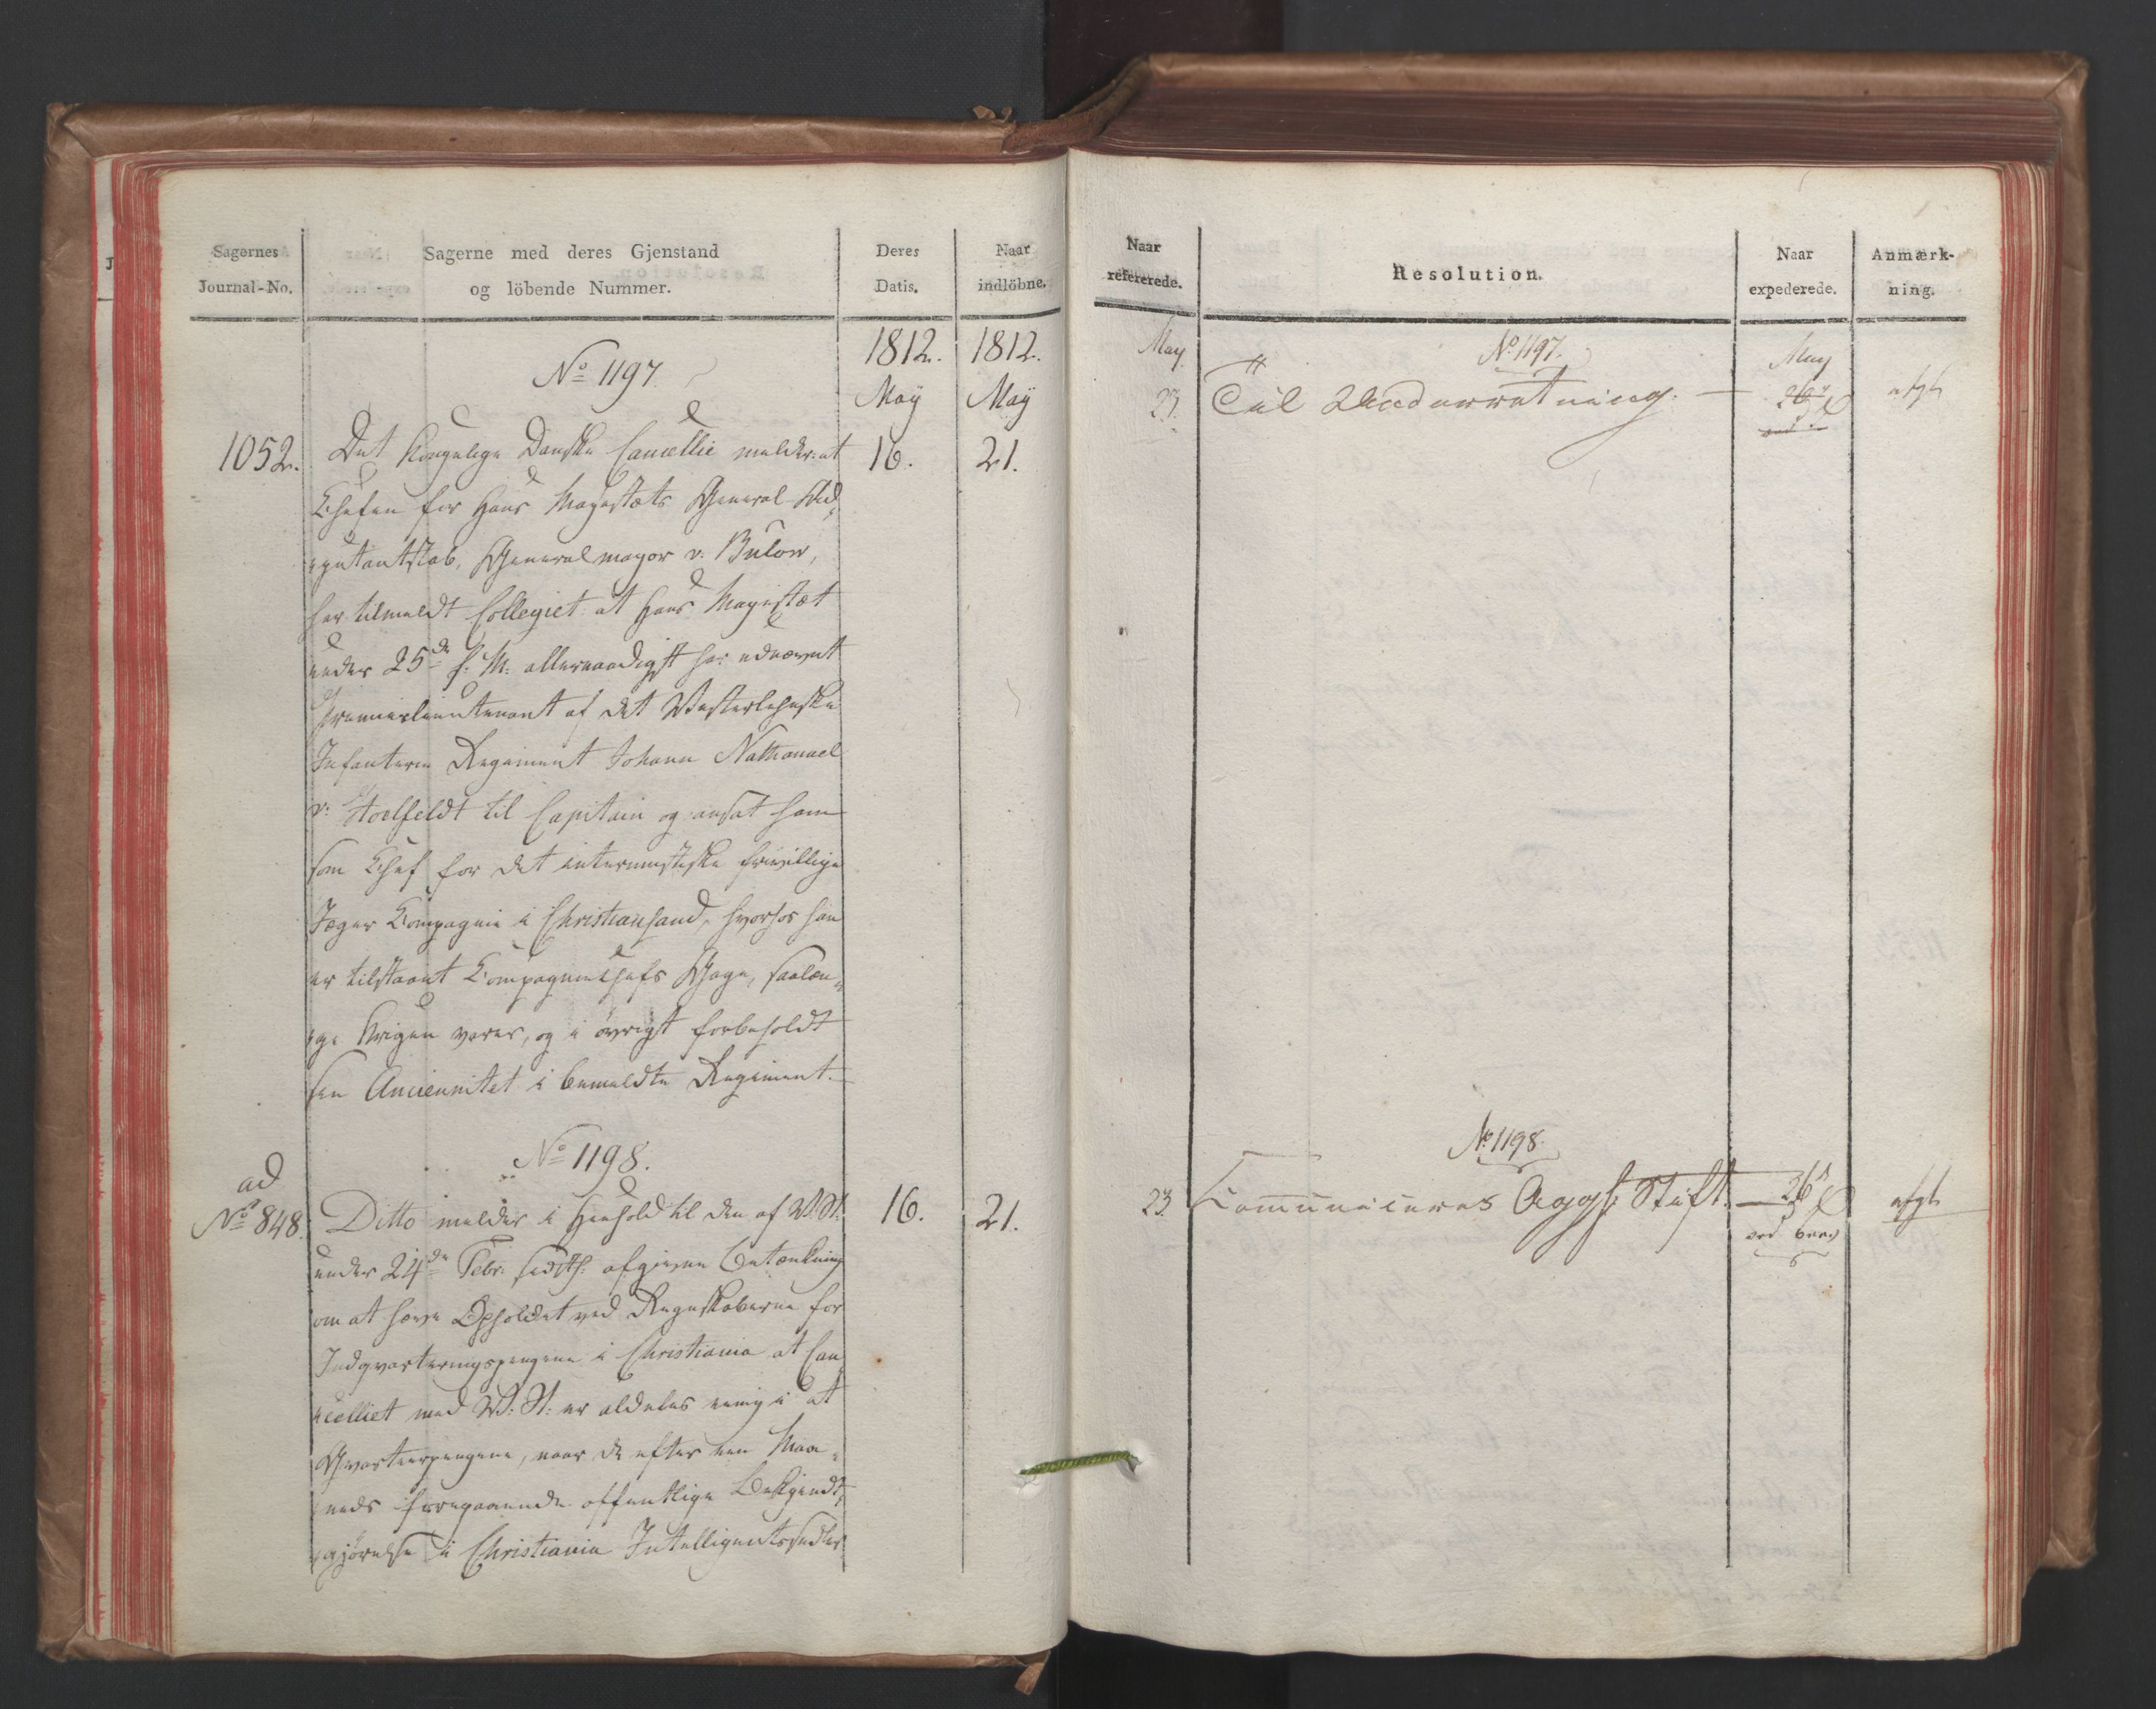 Sagernes
Journal-No.
Sagerne med deres Gjenstand
og löbende Nummer.
Deres
Datis.
Naar
indlöbne.
1812.
May
1812.
May
No 1197
1052. Det Kongelige Danske Cancellie melder: at 16. 21.
Chefen for Hans Majestæts General-Ad,
„jutantstab, Generalmajor v. Bülow,
har tilmeldt Collegiet at Hans Majestæt
under 25de f. M. allernaadigst har udnævnt
Premierlieutenant af det Vesterlehnske
Infanterie Regiment Johann Nathanael
v. Stoelfeldt til Capitain og ansat ham
som Chef for det interimistiske frivillige
Jæger Compagnie i Christiansand, hvorhos han
er tilstaaet Compagniechefs Gage, saalæn„
„ge Krigen varer, og i övrigt forbeholdt
sin Anciennitet i bemeldte Regiment.
No 1198.
ad
No 848. Ditto melder i Henhold til den af V. St. 16. 21.
under 24de Febr. sidstl. afgivne Betænkning
om at hæve Opholdet ved Regnskaberne for
Indqvarteringspengene i Christiania at Can,
„celliet med V. St. er aldeles enig i at
Qvarteerpengene, naar de efter en Maa„
„neds foregaaende offentlige Bekjendt,
„gjørelse i Christiania Intelligentssedler
Naar
refererede.
Resolution.
Naar
expederede.
Anmærk-
ning.
May
No 1197.
May
23. Til Underretning. — 26 afgl
No 1198.
23. Communiceres Aggh. Stift. — 26 afgl